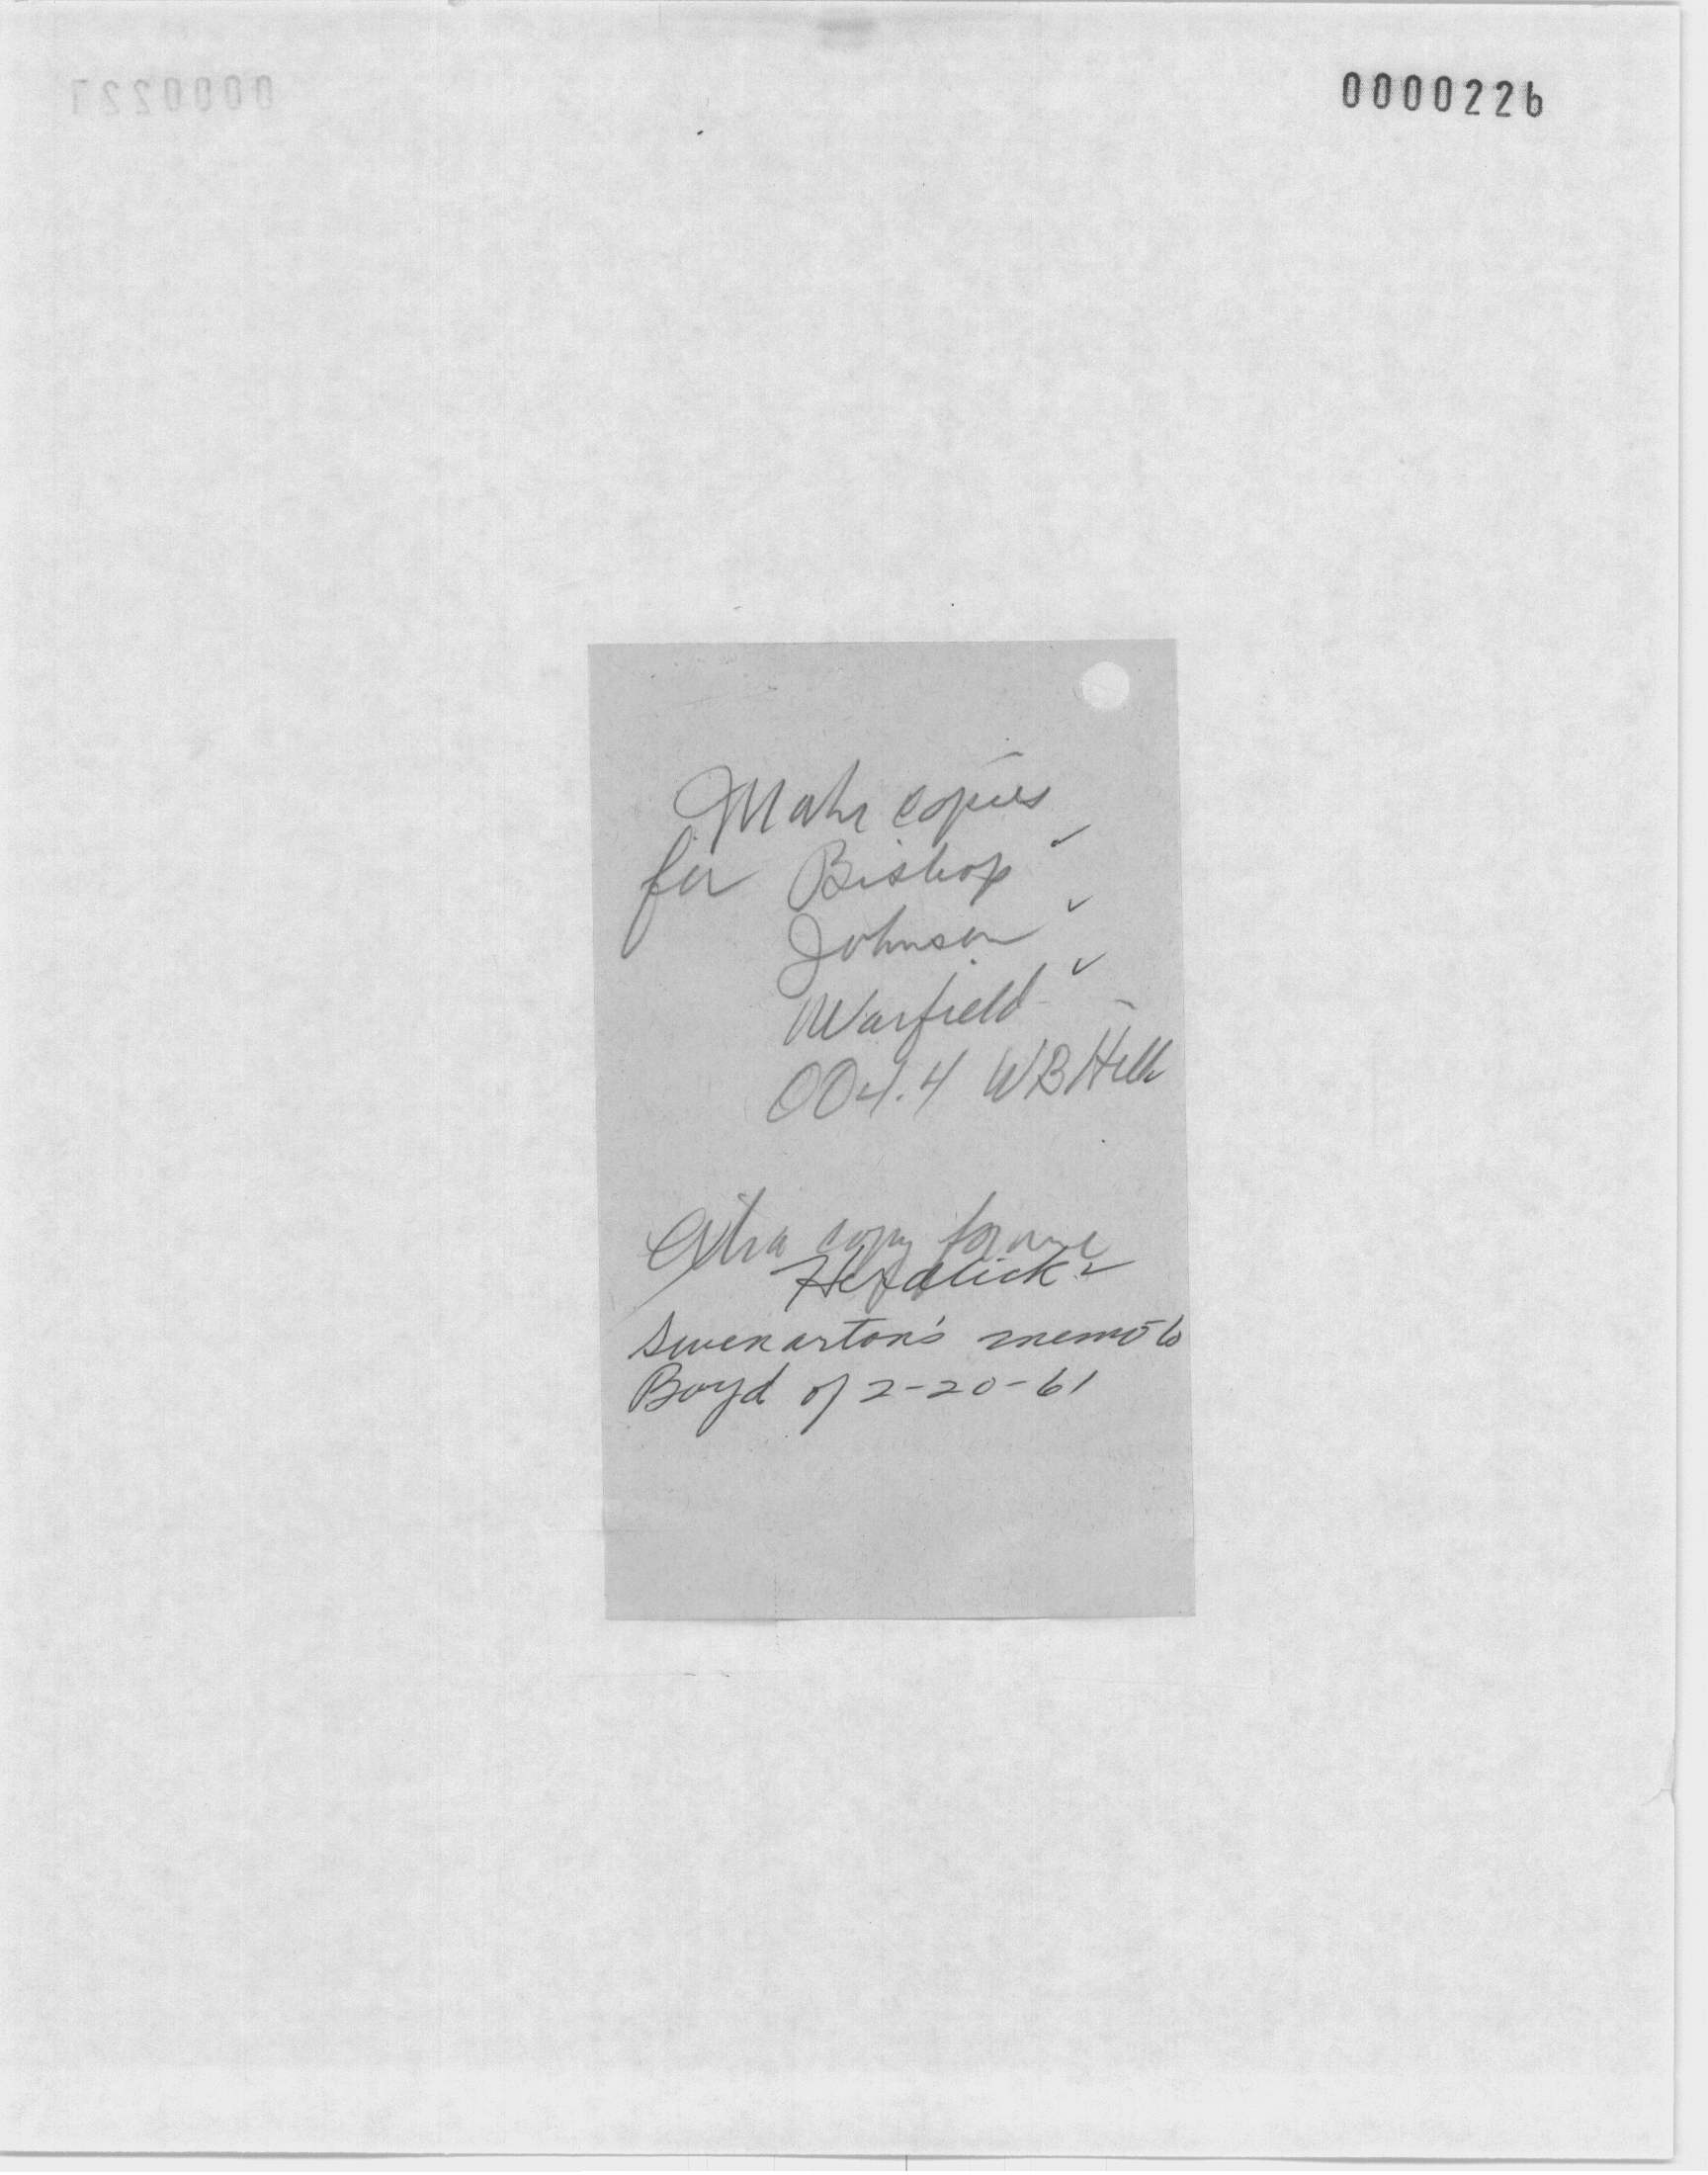 0000226
Make copies
for Bishop ✓
Johnson ✓
Warfield ✓
004.4 WB Hill
Extra copy for me
Swenarton's memo to
Boyd of 2-20-61